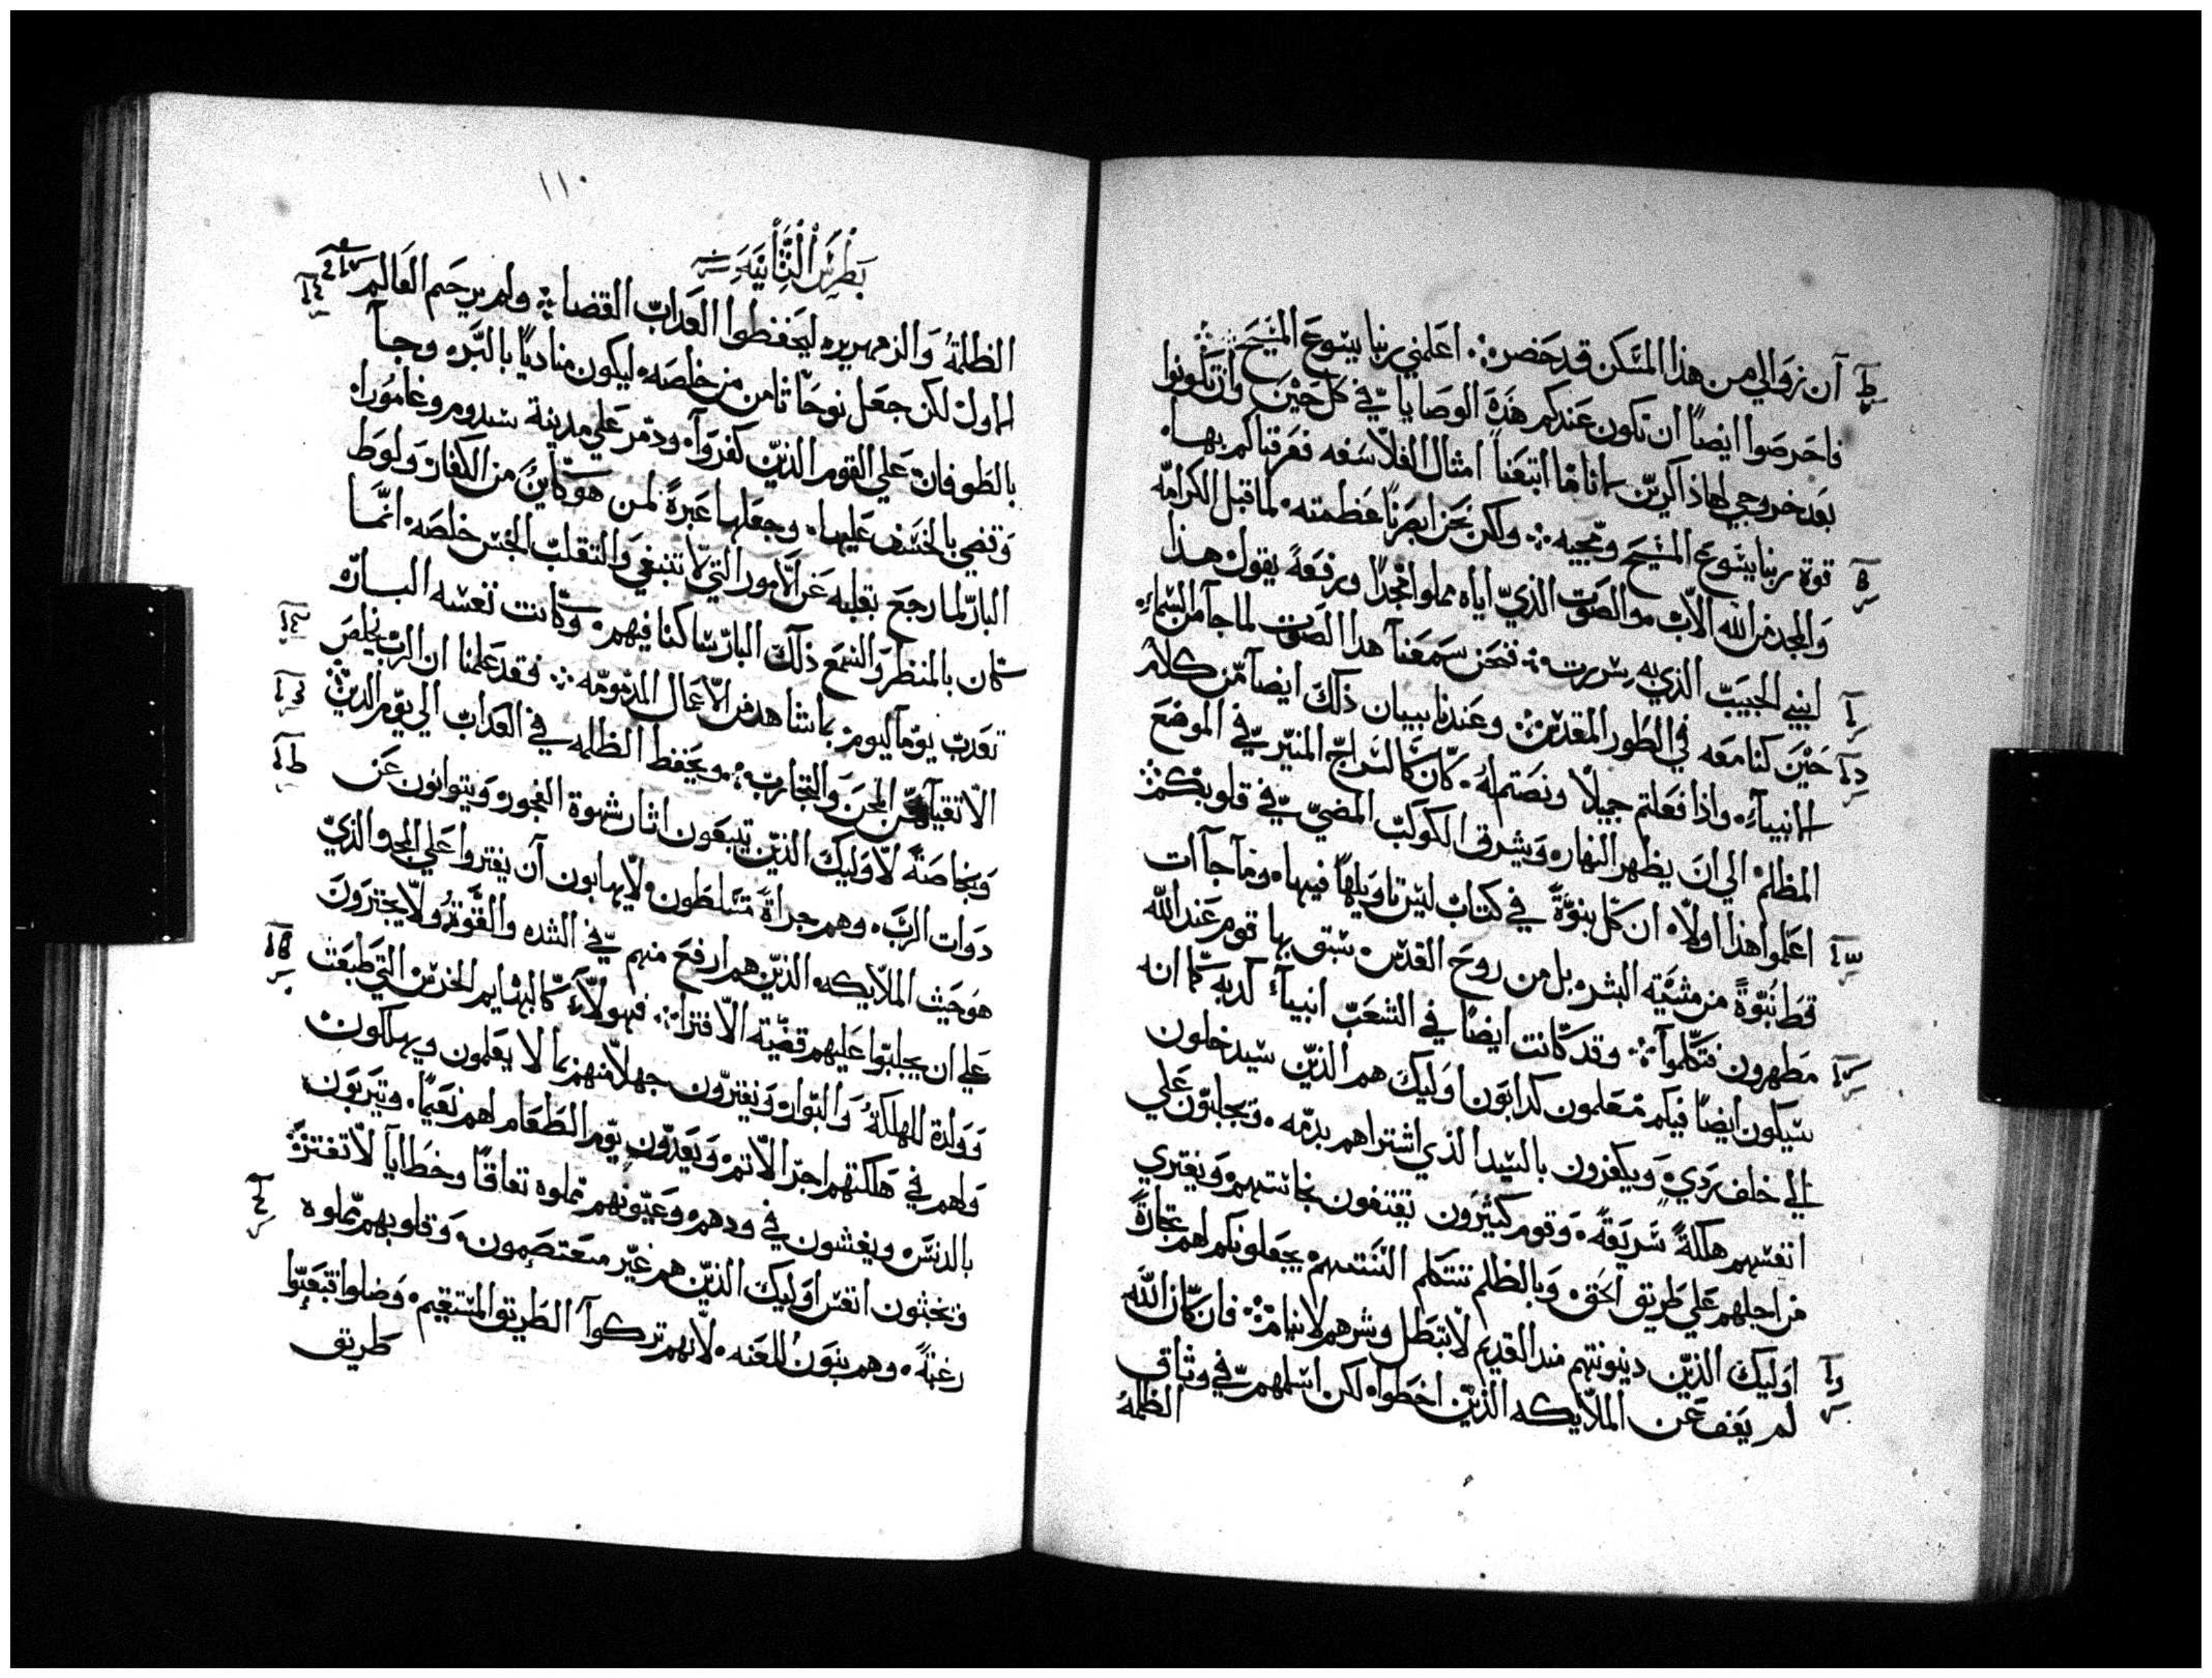 آن زوالي من هذا المسكن قد حضر؞ اعلمني ربنا يسوع المسيح؞
فاحرصوا ايضاً ان تكون عندكم هذه الوصايا في كل حين وان تكونوا
بعد خروجي لها ذاكرين لاننا ما اتبعنا امثال الفلاسفه فعرفناكم بها
قوة ربنا يسوع المسيح ومجيه؞ ولكن نحن ابصرنا عظمته لما قبل الكرامه
والمجد من الله الاب والصوت الذي اياه مملوا مجدًا ورفعةً يقول هذا
ابني الحبيب الذي به سررت؞ فنحن سمعنا هدا الصوت لما جا من السماء
حين كنا معه في الطور المقدس؞ وعندنا بيان ذلك ايضا من كلام
الانبياء واذا فعلتم جميلا كان كالسراج المنير في الموضع
المظلم الي ان يظهر النهار ويشرق الكوكب المضي في قلوبكم؞
اعلموا هذا اولا ان كل نبوة في كتاب ليس تاويلها فيها وما جاات
قط نبوة من مشية البشر بل من روح القدس سبق بها قوم عند الله
مطهرون فتكلموا؞ وقد كانت ايضًا في الشعب انبياء كدبه كما انه
سيكون ايضًا فيكم معلمون كدابون اوليك هم الذين سيدخلون
الي خلف ردي ويكفرون بالسيد الذي اشتراهم بدمه ويجلبون علي
انفسهم هلكة سريعة وقوم كثيرون يقتفون نجاستهم ويفتري
من اجلهم علي طريق الحق وبالظلم تتكلم السنتهم يجعلونكم لهم تجارة
اوليك الذين دينونتهم مند القديم لا تبطل وشرهم لا ينام؞ فان كان الله
لم يعف عن الملايكه الذين اخطوا لكن اسلمهم في وثاق
الظلمة
١١٠
بطرس الثانية
الظلمة والزمهرير ليحفظوا العداب القضا؞ ولم يرحم العالم
الاول لكن جعل نوحًا ثامن من خلصه ليكون مناديًا بالبر وجا
بالطوفان علي القوم الذين كفروا ودمر علي مدينة سدوم وغامورا
وقضي بالخسف عليها وجعلها عبرة لمن هو كاين من الكفار ولوط
البار لما رجع بقلبه عن الامور التي لا تنبغي والتقلب النجس خلصه انما
كان بالمنظر والسمع ذلك البار ساكنا فيهم وكانت نفسه البارة
تعدب يومًا ليوم بما تشاهد من الاعمال المدمومه؞ فقد علمنا ان الرب يخلص
الاتقيا من المحن والتجارب؞ ويحفظ الظلمه في العداب الي يوم الدين؞
وبخاصة لاوليك الذين يتبعون اثار شهوة الفجور ويتوانون عن
دوات الرب وهم جراة متسلطون لا يهابون ان يفتروا علي المجد الذي
هو حيث الملايكه الذين هم ارفع منهم في الشده والقوة ولا يجترون
علي ان يجلبوا عليهم قضية الافترا؞ فهولاء كالبهايم الخرس التي طبعت
وولدة للهلكة والبوار ويفترون جهلا منهم بما لا يعلمون ويهلكون
ولهم في هلكتهم اجر الاثم ويعدون يوم الطعام لهم نعيمًا ويتربون
بالدنس ويغشون في ودهم وعيونهم مملوه نفاقًا وخطايا لا تفتر
ويخبثون انفس اوليك الذين هم غير معتصمون وقلوبهم مملوه
رغبة وهم بنون اللعنه لانهم تركوا الطريق المستقيم وضلوا تبعوا
طريق